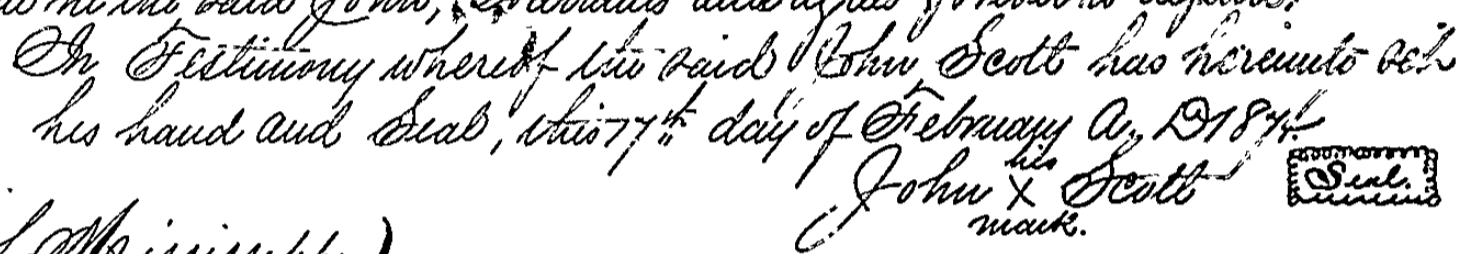 the said John,
In Testimony whereof the said John Scott has hereunto set
his hand and Seal, this 17th day of February A. D 1874.
his
John X Scott Seal.
mark.
Mississippi )